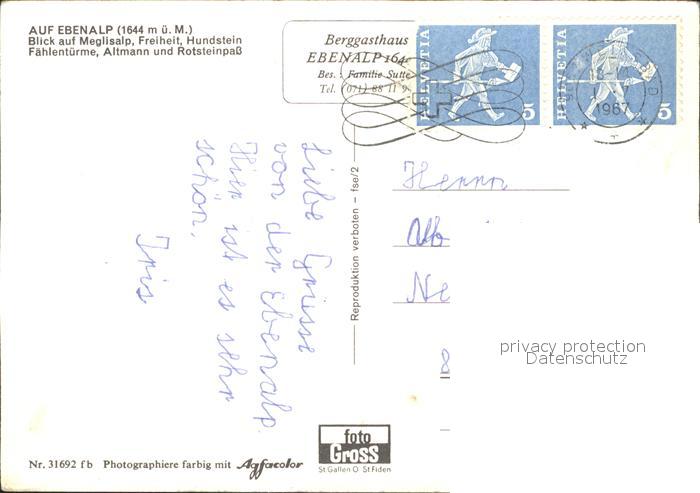 AUF EBENALP (1644 m ü. M.)
Blick auf Meglisalp, Freiheit, Hundstein
Fählentürme, Altmann und Rotsteinpaß
Berggasthaus
EBENALP 164
Bes.: Familie Sutte
Tel. (071) 88 11 9
HELVETIA
5
HELVETIA
5
1967
Liebe Grüsse
von der Ebenalp.
Hier ist es sehr
schön.
Iris
Reproduktion verboten – fse/2
Herrn
Alb
Ne
8
privacy protection
Datenschutz
Nr. 31692 fb Photographiere farbig mit Agfacolor
foto
Gross
St.Gallen O St.Fiden